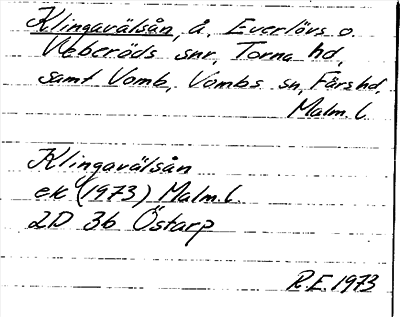 Klingavälsån, å, Everlövs o.
Veberöds snr, Torna hd,
samt Vomb, Vombs sn, Färs hd,
Malm. l.
Klingavälsån
ek (1973) Malm. l.
2D 3b Östarp
R.E. 1973